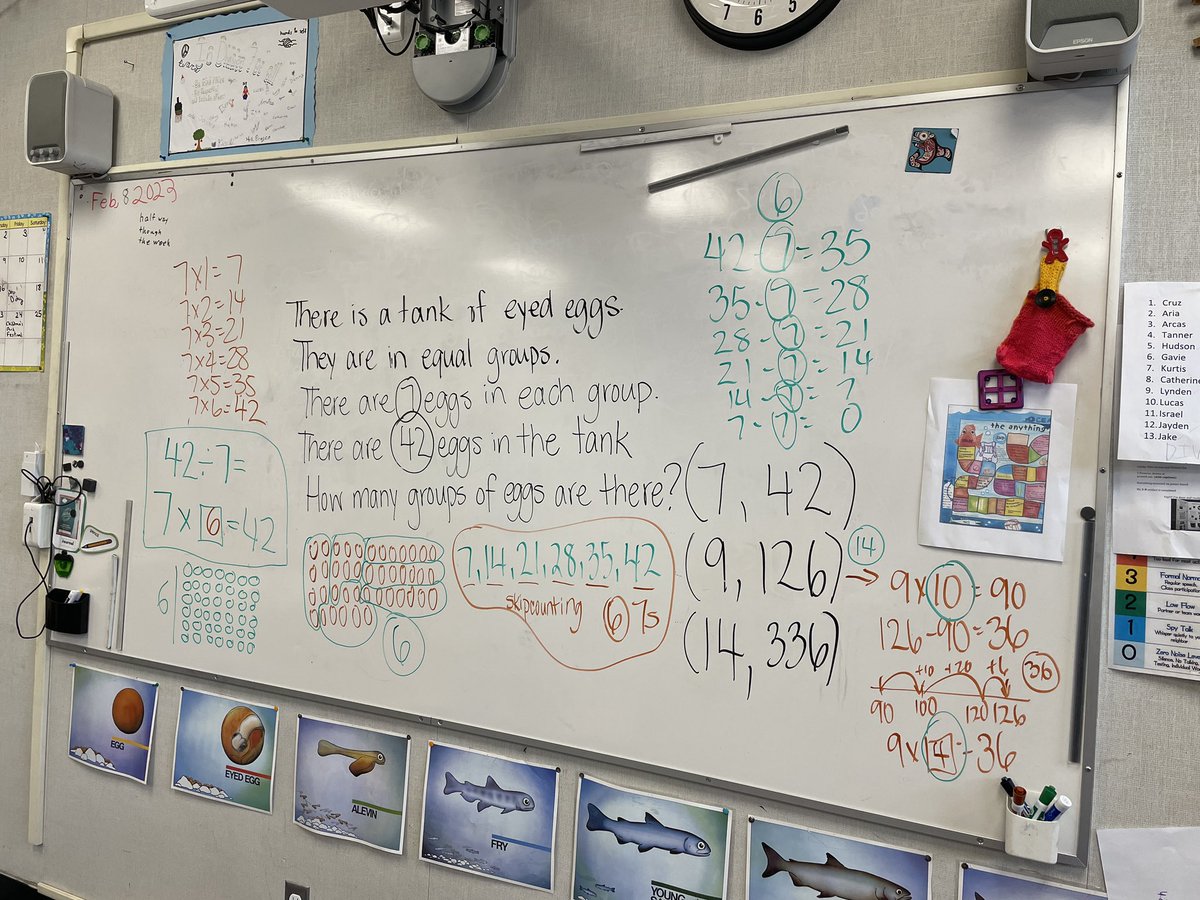 7 6 5
EPSON
Feb, 8 2023
half way
though
the week
7x1=7
7x2=14
7x3=21
7x4=28
7x5=35
7x6=42
42÷7=
7x6=42
6
There is a tank of eyed eggs.
They are in equal groups.
There are 7 eggs in each group.
There are 42 eggs in the tank
How many groups of eggs are there?
6
7, 14, 21, 28, 35, 42
skipcounting 6 7s
6
42-7=35
35-7=28
28-7=21
21-7=14
14-7=7
7-7=0
(7, 42)
(9, 126)
(14, 336)
14
9x10=90
126-90=36
+10 +20 +6 36
90 100 120 126
9x4=36
the anything
1. Cruz
2. Aria
3. Arcas
4. Tanner
5. Hudson
6. Gavie
7. Kurtis
8. Catherin
9. Lynden
10. Lucas
11. Israel
12. Jayden
13. Jake
3 Formal Norm
2 Low Flow
1 Spy Talk
0 Zero Noise Leve
Friday Saturday
EGG
EYED EGG
ALEVIN
FRY
YOUNG